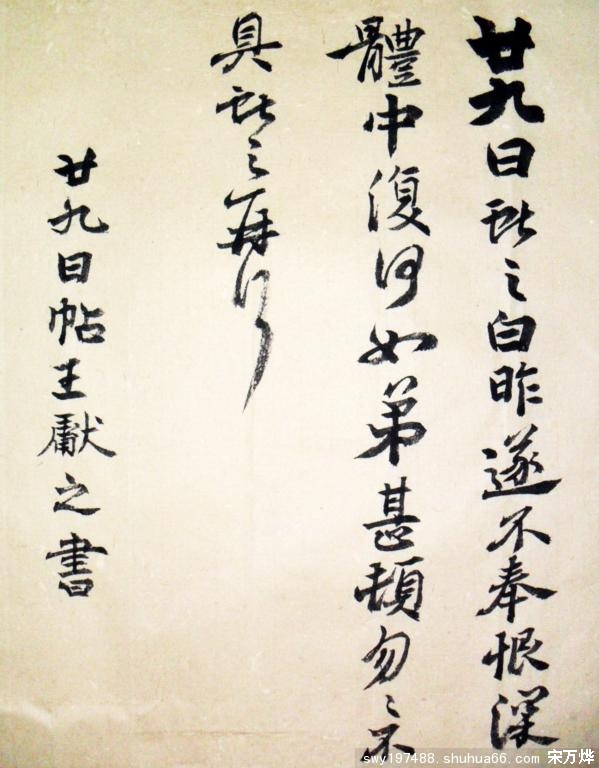 廿九日獻之白昨遂不奉恨深
體中復何如弟甚頓勿〻不
具獻之再拜
廿九日帖王獻之書
swy197488.shuhua66.com 宋万烨